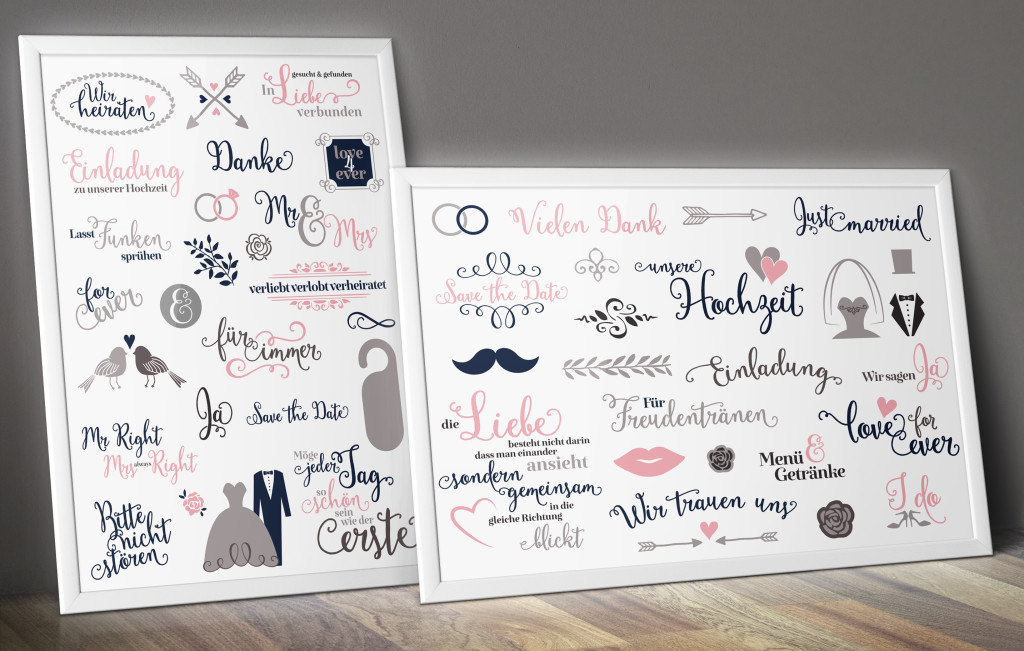 Wir
heiraten
gesucht & gefunden
In Liebe
verbunden
Einladung
zu unserer Hochzeit
Danke
love
4
ever
Mr & Mrs
Lasst Funken
sprühen
verliebt verlobt verheiratet
for
ever
&
für immer
Ja
Save the Date
Mr Right
Mrs always Right
Möge
jeder Tag
so
schön
sein
wie der
erste
Bitte
nicht
stören
Vielen Dank
Just married
Save the Date
unsere
Hochzeit
Einladung
Wir sagen Ja
die Liebe
besteht nicht darin
dass man einander
ansieht
sondern
gemeinsam
in die
gleiche Richtung
blickt
Für
Freudentränen
love for
ever
Menü &
Getränke
Wir trauen uns
I do